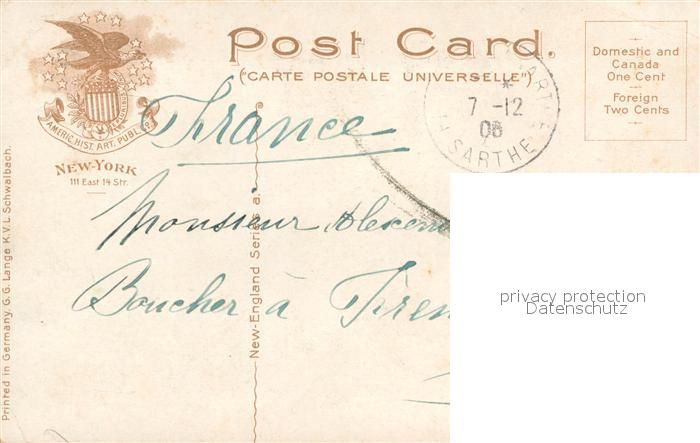 Post Card.
("CARTE POSTALE UNIVERSELLE")
Domestic and
Canada
One Cent
Foreign
Two Cents
AMERIC. HIST. ART. PUBL.
NEW-YORK
111 East 14 Str.
7 -12
06
SARTHE
France
Monsieur
Boucher à
New-England Series a.
Printed in Germany. G. G. Lange K. V. L. Schwalbach.
privacy protection
Datenschutz